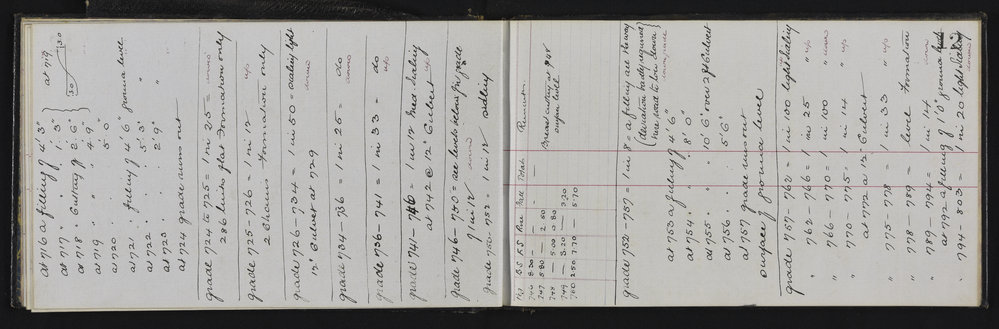 at 716 a filling of 4' 3"
at 717 " " " 1' 3"
at 718 " cutting of 2' 6"
at 719 " " " 4' 9"
at 719
30
30
at 720 " " 5' 0
at 721 " filling of 4' 6" ground level
at 722 " " 5' 3" "
at 723 " " 2' 9" "
at 724 grade runs out
grade 724 to 725 = 1 in 25 = down
286 links flat Formation only
grade 725 - 726 = 1 in 12 up
2 chains Formation only
grade 726 - 734 = 1 in 50 = sealing light
down
12" Culvert at 729
grade 734 - 736 = 1 in 25 = do
down
grade 736 - 741 = 1 in 33 = do
up
grade 741 - 746 = 1 in 12 Med. sealing
at 742 @ 12" Culvert up
grade 746 - 750 = see levels below for grade
of 1 in 12 down
grade 750 - 752 = 1 in 12 sidling
Pg B.S F.S Rise Fall Total Remarks
746 8.20 — — —
747 5.80 — 2.50
748 — 5.00 0.80
749 — 3.20 — 3.20
750 2.50 5.70 5.70
grade 752 - 757 = 1 in 8 = a filling all the way
at 753 a filling of 4' 6"
at 754 " " 8' 0
at 755 " " 10' 6" over 2 ft Culvert
at 756 " " 5' 6"
at 757 grade runs out
surface of ground level
grade 757 - 762 = 1 in 100 light sealing
" 762 - 766 = 1 in 25 " up
" 766 - 770 = 1 in 100 " down
" 770 - 775 = 1 in 14 " up
at 772 a 12" Culvert
" 775 - 778 = 1 in 33 " up
" 778 - 789 = level Formation
" 789 - 794 = 1 in 14 down
at 792 a filling of 1' 0" ground
" 794 - 803 = 1 in 20 light sealing